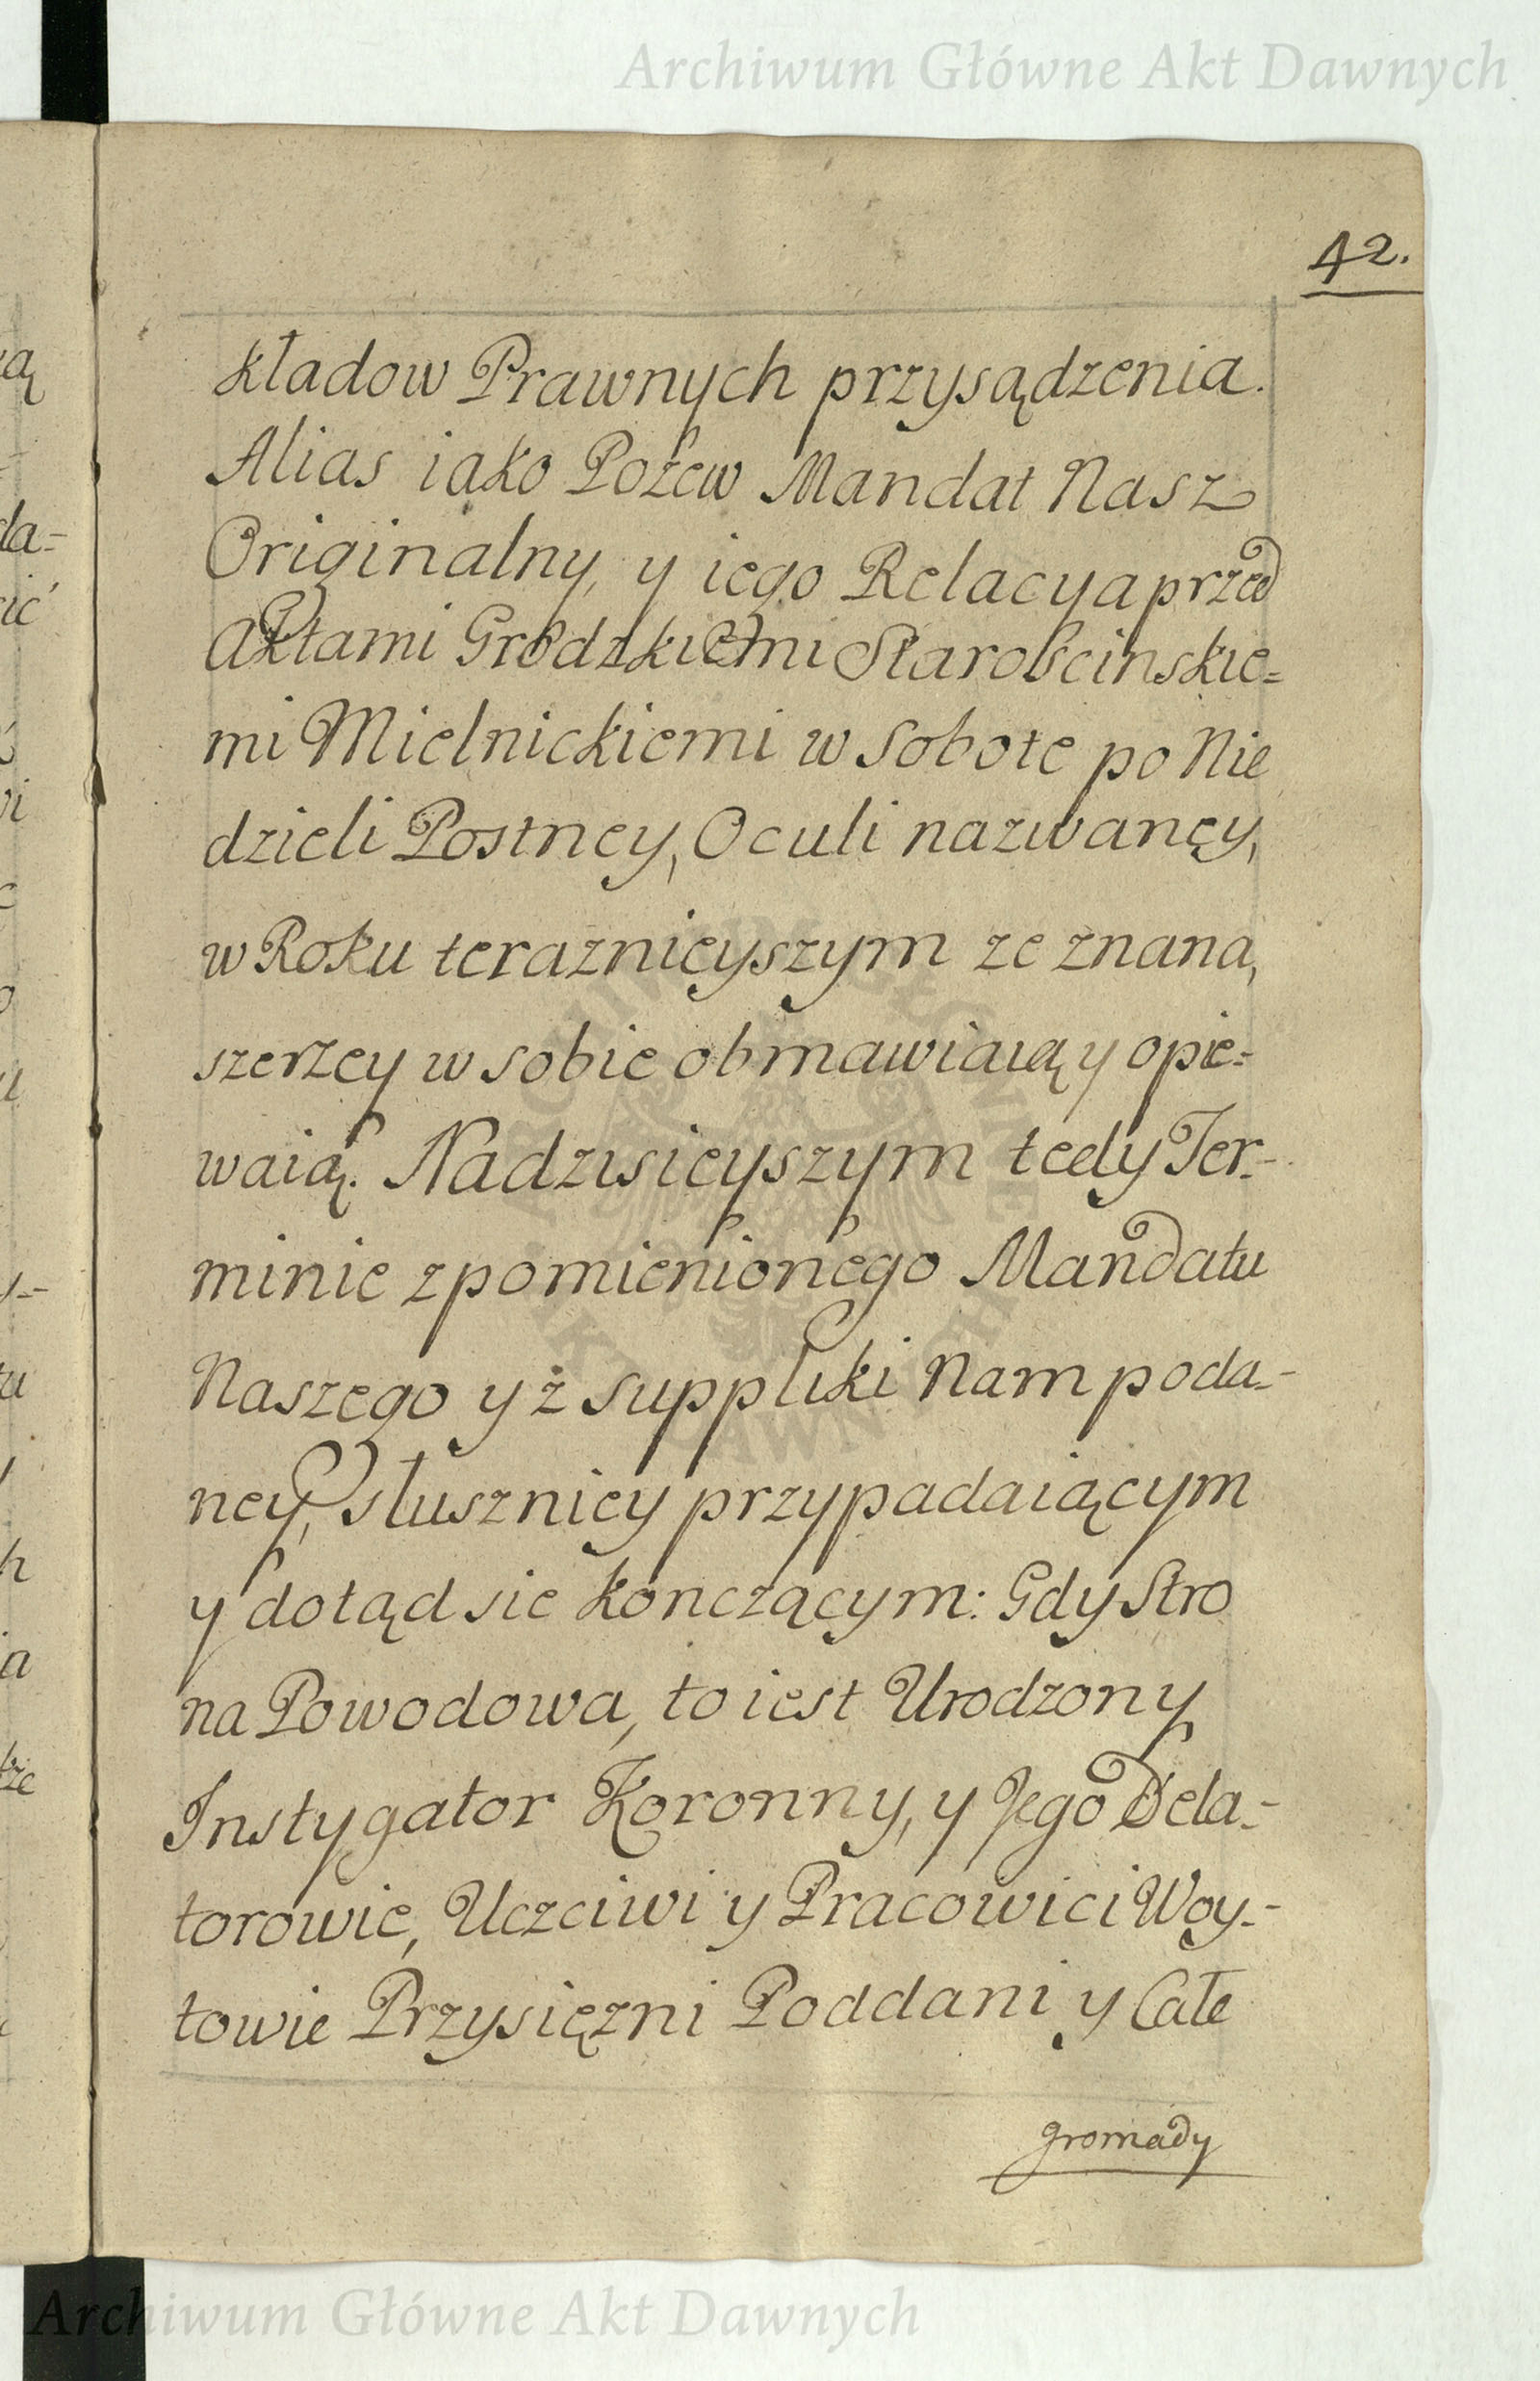 Archiwum Główne Akt Dawnych
42.
kładow Prawnych przysądzenia.
Alias iako Pozew Mandat Nasz
Originalny, y iego Relacya przed
Aktami Grodzkiemi Starościnskie=
mi Mielnickiemi w Sobote po Nie
dzieli Postney, Oculi nazwaney,
w Roku teraznieyszym ze znana,
szerzey w sobie obmawiaią y opie=
waią. Na dzisieyszym tedy Ter=
minie z pomienionego Mandatu
Naszego y z suppliki Nam poda=
ney, słuszniey przypadaiącym
y dotąd sie kończącym: Gdy Stro
na Powodowa, to iest Urodzony
Instygator Koronny, y Jego Dela=
torowie, Uczciwi y Pracowici Woy=
towie Przysiężni Poddani y Całe
gromady
Archiwum Główne Akt Dawnych